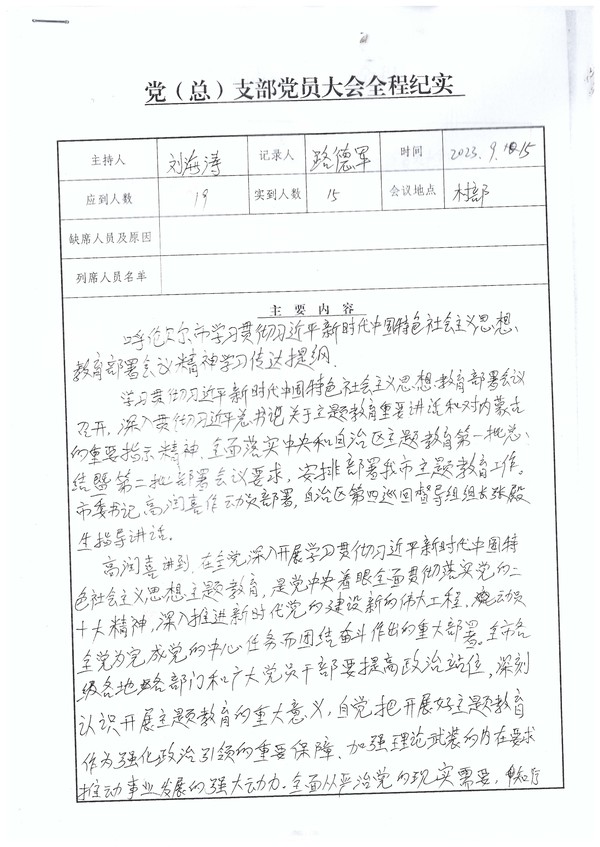 党（总）支部党员大会全程纪实
主持人 刘海涛 记录人 路德军 时间 2023.9.15
应到人数 19 实到人数 15 会议地点 村部
缺席人员及原因
列席人员名单
主要内容
呼伦贝尔市学习贯彻习近平新时代中国特色社会主义思想、
教育部署会议精神学习传达提纲
学习贯彻习近平新时代中国特色社会主义思想教育部署会议
召开，深入贯彻习近平总书记关于主题教育重要讲话和对内蒙古
的重要指示精神，全面落实中央和自治区主题教育第一批总
结暨第二批部署会议要求，安排部署我市主题教育工作。
市委书记高润喜作动员部署，自治区第四巡回督导组组长张殿
生指导讲话。
高润喜讲到，在全党深入开展学习贯彻习近平新时代中国特
色社会主义思想主题教育，是党中央着眼全面贯彻落实党的二
十大精神，深入推进新时代党的建设新的伟大工程，动员
全党为完成党的中心任务而团结奋斗作出的重大部署。全市各
级各地各部门和广大党员干部要提高政治站位，深刻
认识开展主题教育的重大意义，自觉把开展好主题教育
作为强化政治引领的重要保障、加强理论武装的内在要求
推动事业发展的强大动力。全面从严治党的现实需要，